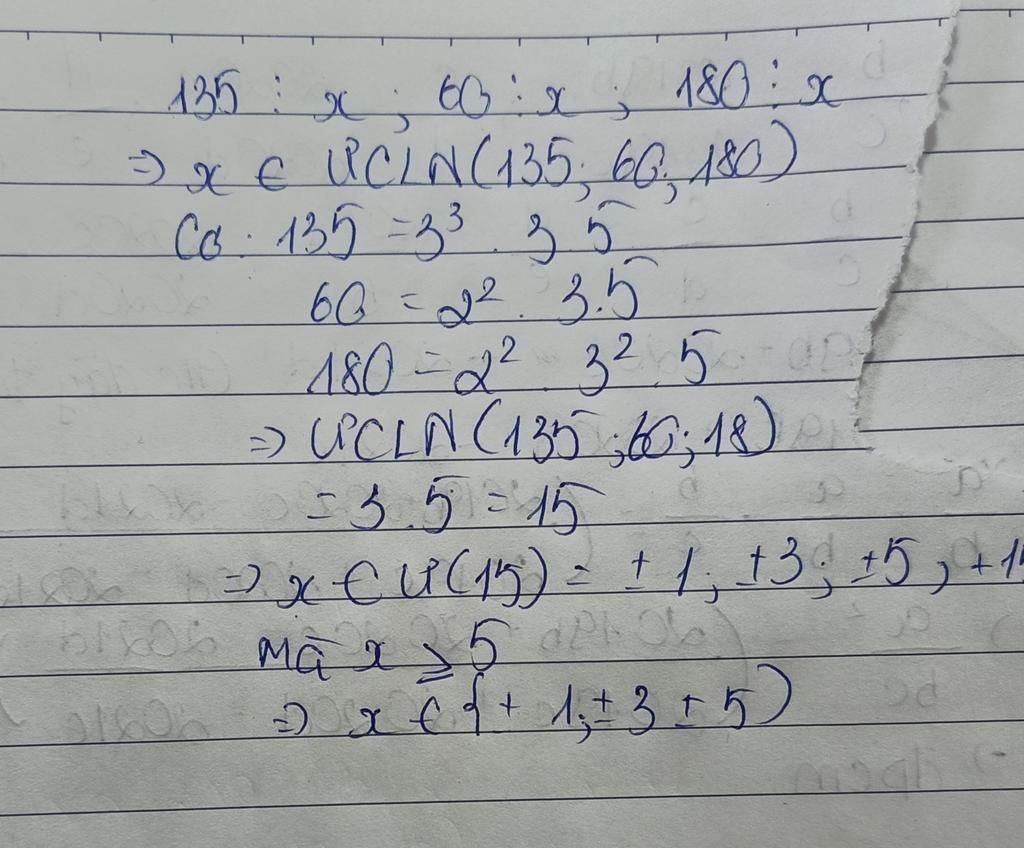 135 ⋮ x ; 60 ⋮ x ; 180 ⋮ x
=> x ∈ ƯCLN(135; 60; 180)
Có . 135 = 3³ . 3 5
60 = 2² . 3.5
180 = 2² . 3² . 5
=> ƯCLN(135; 60; 18)
= 3.5 = 15
=> x ∈ Ư(15) = ± 1; ±3; ±5; +15
Mà x ⩾ 5
=> x ∈ { + 1; ± 3 ± 5)